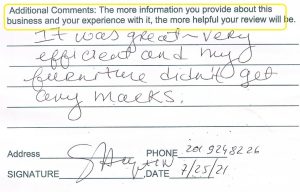 Additional Comments: The more information you provide about this
business and your experience with it, the more helpful your review will be.
It was great - very
efficient and my
furniture didn't get
any marks.
Address
PHONE 2019248226
SIGNATURE DATE 7/25/21